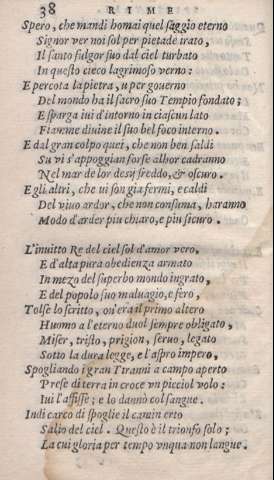 38 RIME
Spero, che mandi homai quel saggio eterno
Signor ver noi sol per pietade irato,
Il santo fulgor suo dal ciel turbato
In questo cieco lagrimoso verno:
E percota la pietra, u per governo
Del mondo ha il sacro suo Tempio fondato;
E sparga iui d'intorno in ciascun lato
Fiamme diuine il suo bel foco interno.
E dal gran colpo quei, che non ben saldi
Su vi s'appoggian forse alhor cadranno
Nel mar de lor desij freddo, & oscuro.
E gli altri, che ui son gia fermi, e caldi
Del viuo ardor, che non consuma, haranno
Modo d'arder piu chiaro, e piu sicuro.
L'inuitto Re del ciel sol d'amor vero,
E d'alta pura obedienza armato
In mezo del superbo mondo ingrato,
E del popolo suo maluagio, e fero,
Tolse lo scritto, on'era il primo altero
Huomo a l'eterno duol sempre obligato,
Miser, tristo, prigion, seruo, legato
Sotto la dura legge, e l'aspro impero,
Spogliando i gran Tiranni a campo aperto
Prese di terra in croce vn picciol volo:
Iui l'affisse; e lo dannò col sangue.
Indi carco di spoglie il camin erto
Salio del ciel. Questo è il trionfo solo;
La cui gloria per tempo vnqua non langue.